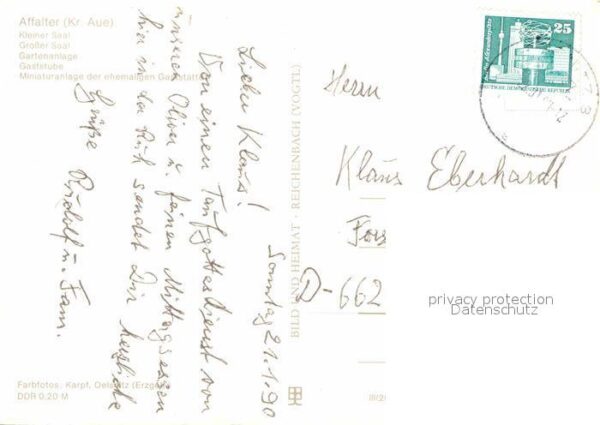 Affalter (Kr. Aue)
Kleiner Saal
Großer Saal
Gartenanlage
Gaststube
Miniaturanlage der ehemaligen Gaststätte
Sonntag 21.1.90
Lieber Klaus!
Von einem Taufgottesdienst von
unseren Oliver u. feinen Mittagessen
hier in der Ruh sendet Dir herzliche
Grüße Rudolf u. Fam.
Farbfotos: Karpf, Oelsnitz (Erzgeb.)
DDR 0,20 M
BILD UND HEIMAT · REICHENBACH (VOGTL)
25
Berlin, Alexanderplatz
DEUTSCHE DEMOKRATISCHE REPUBLIK
Herrn
Klaus Eberhardt
Fors
D-662
privacy protection
Datenschutz